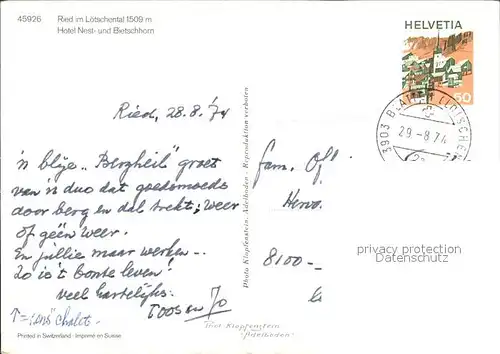 45926 Ried im Lötschental 1509 m
Hotel Nest- und Bietschhorn
HELVETIA
50
3903 BLATTEN (LÖTSCHEN)
29.-8.74
Ried, 28.8.'74
'n blije "Bergheil" groet
van 'n duo dat goedsmoeds
door berg en dal trekt; weer
of géén weer.
En jullie maar werken -..
Zo is 't bonte leven!
veel hartelijks.
Toos en Jo
chalet.
fam.
8100-
Photo Klopfenstein, Adelboden - Reproduktion verboten
privacy protection
Datenschutz
Foto Klopfenstein
Adelboden
Printed in Switzerland · Imprimé en Suisse